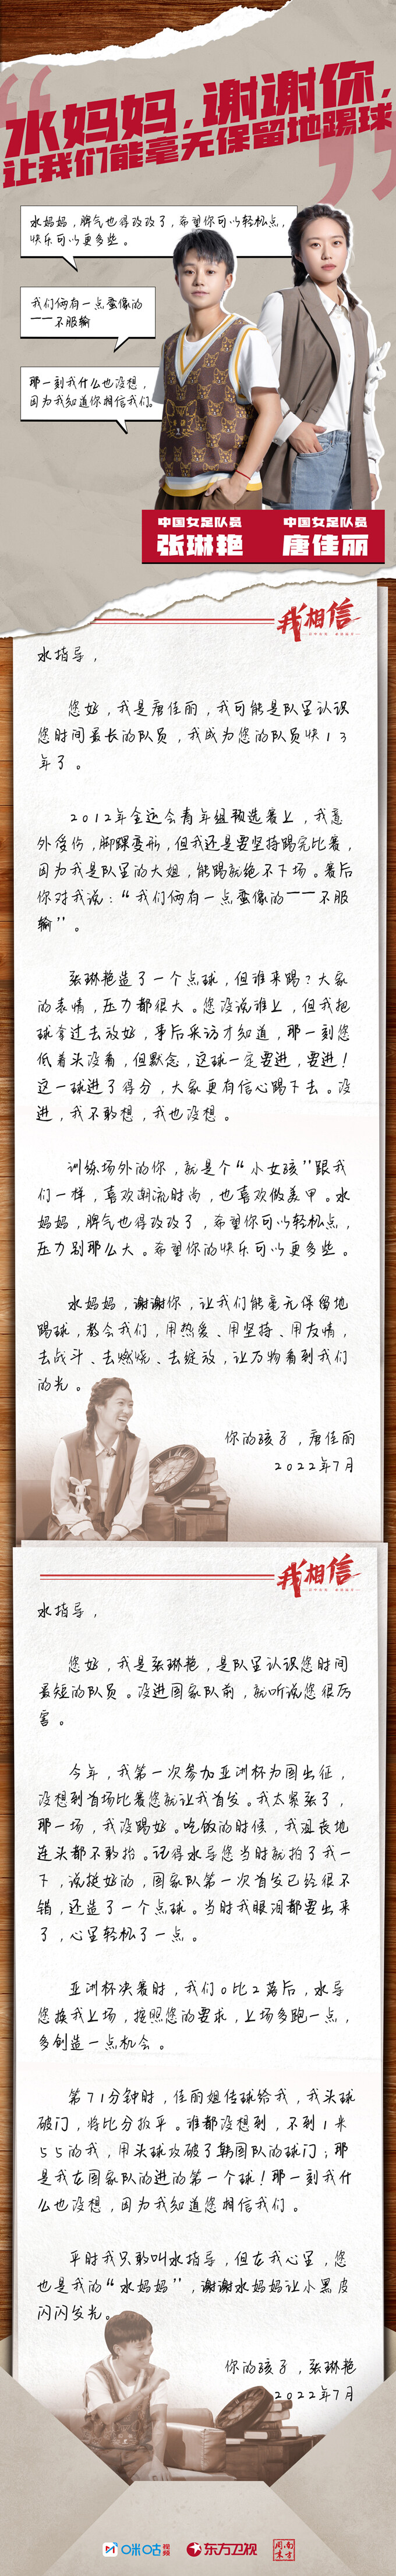 水妈妈,谢谢你,
让我们能毫无保留地踢球
水妈妈,脾气也得改改了,希望你可以轻松点,
快乐可以更多些。
我们俩有一点蛮像的
——不服输
那一刻我什么也没想,
因为我知道你相信我们。
中国女足队员
张琳艳
中国女足队员
唐佳丽
我相信
水指导,
您好,我是唐佳丽,我可能是队里认识
您时间最长的队员,我成为您的队员快13
年了。
2012年全运会青年组预选赛上,我意
外受伤,脚踝变形,但我还是要坚持踢完比赛,
因为我是队里的大姐,能踢就绝不下场。赛后
你对我说:“我们俩有一点蛮像的——不服
输”。
张琳艳造了一个点球,但谁来踢?大家
的表情,压力都很大。您没说谁上,但我把
球拿过去放好,事后采访才知道,那一刻您
低着头没看,但默念,这球一定要进,要进!
这一球进了得分,大家更有信心踢下去。没
进,我不敢想,我也没想。
训练场外的你,就是个“小女孩”跟我
们一样,喜欢潮流时尚,也喜欢做美甲。水
妈妈,脾气也得改改了,希望你可以轻松点,
压力别那么大。希望你的快乐可以更多些。
水妈妈,谢谢你,让我们能毫无保留地
踢球,教会我们,用热爱、用坚持、用友情,
去战斗、去燃烧、去绽放,让万物看到我们
的光。
你的孩子,唐佳丽
2022年7月
我相信
水指导,
您好,我是张琳艳,是队里认识您时间
最短的队员。没进国家队前,就听说您很厉
害。
今年,我第一次参加亚洲杯为国出征,
没想到首场比赛您就让我首发。我太紧张了,
那一场,我没踢好。吃饭的时候,我沮丧地
连头都不敢抬。记得水导您当时就拍了我一
下,说挺好的,国家队第一次首发已经很不
错,还造了一个点球。当时我眼泪都要出来
了,心里轻松了一点。
亚洲杯决赛时,我们0比2落后,水导
您换我上场,按照您的要求,上场多跑一点,
多创造一点机会。
第71分钟时,佳丽姐传球给我,我头球
破门,将比分扳平。谁都没想到,不到1米
55的我,用头球攻破了韩国队的球门;那
是我在国家队的进的第一个球!那一刻我什
么也没想,因为我知道您相信我们。
平时我只敢叫水指导,但在我心里,您
也是我的“水妈妈”,谢谢水妈妈让小黑皮
闪闪发光。
你的孩子,张琳艳
2022年7月
咪咕视频
东方卫视
南方周末